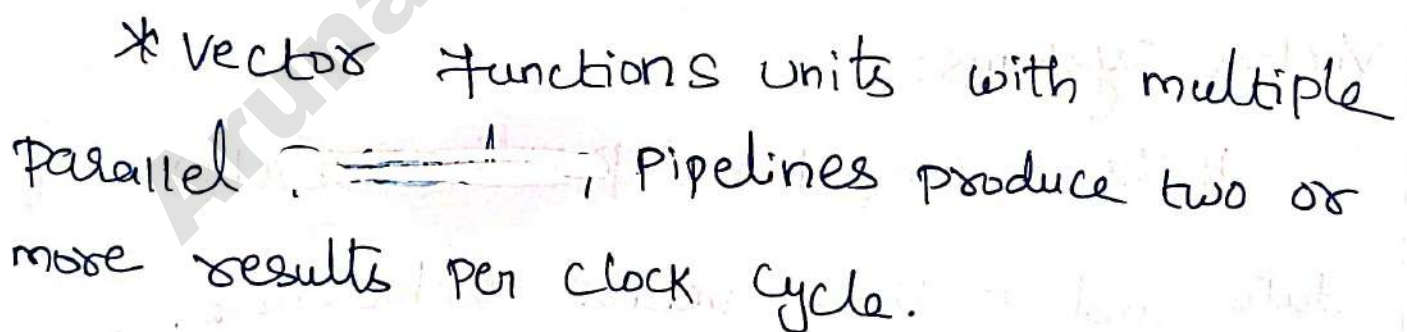 * Vector functions units with multiple
Parallel Pipelines produce two or
more results per clock cycle.
Aruna